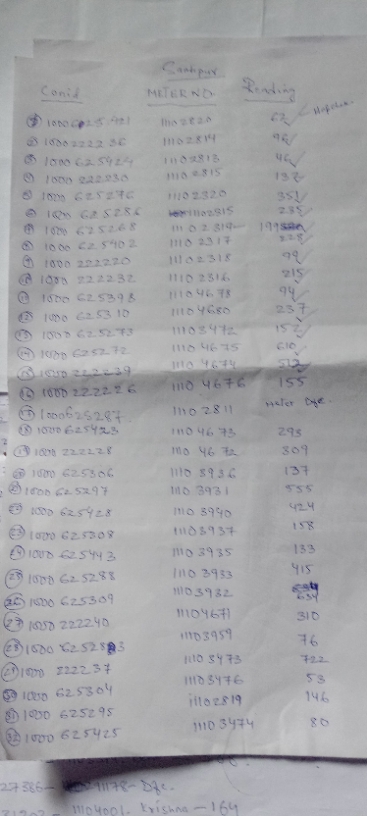 Conid METER NO. Reading
① 1000625421 11102820 62
② 1000222236 11102814 96
③ 1000625424 11102813 46
④ 1000222230 11102815 132
⑤ 1000625276 11102320 351
⑥ 1000 625286 11102815 235
⑦ 1000 625268 11102319 199
⑧ 1000 625402 11102317 228
⑨ 1000 222220 11102318 99
⑩ 1000 222232 11102316 215
⑪ 1000 625398 11104678 94
⑫ 1000 625310 11104680 237
⑬ 1000 625273 11103472 152
⑭ 1000 625272 11104675 610
⑮ 1000 222239 11104674
⑯ 1000 222226 11104676 155
⑰ 1000625287 11102811 Meter Dfc.
⑱ 1000625423 11104673 293
⑲ 1000 222228 11104672 309
⑳ 1000 625306 11103936 137
㉑ 1000 625297 11103931 555
㉒ 1000 625428 11103940 424
㉓ 1000 625308 11103937 158
㉔ 1000 625443 11103935 133
㉕ 1000 625288 11103933 415
㉖ 1000 625309 11103932 634
㉗ 1000 222240 11104671 310
㉘ 1000 625283 11103959 76
㉙ 1000 222237 11103473 722
㉚ 1000 625304 11103476 53
㉛ 1000 625295 11102819 146
㉜ 1000 625425 11103474 80
27386- 11178- Dfc.
11104001- Krishna - 164